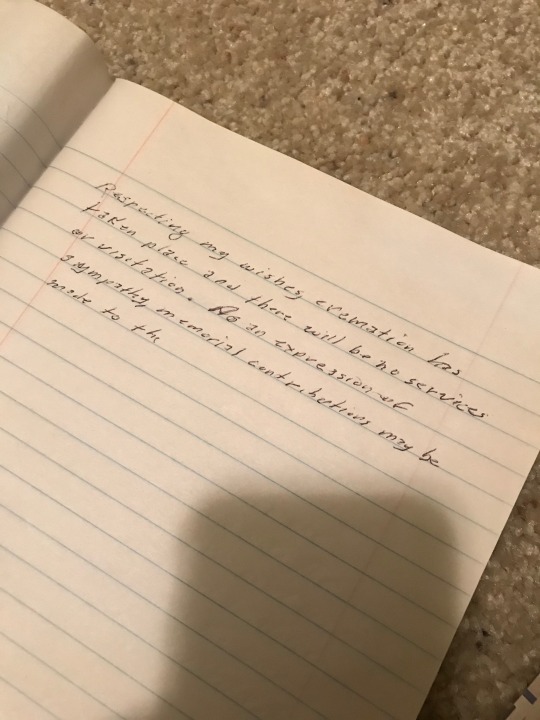 Respecting my wishes, cremation has
taken place and there will be no services
or visitation. As an expression of
sympathy memorial contributions may be
made to the